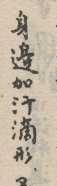 身邊加汗滴形